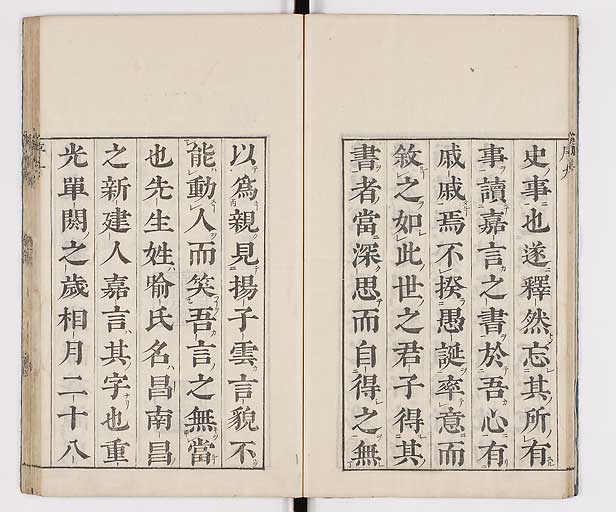 史事也遂釋然忘其所有
事讀嘉言之書於吾心有
戚戚焉不揆愚誕率意而
敘之如此世之君子得其
書者當深思而自得之無
以爲親見揚子雲言貌不
能動人而笑吾言之無當
也先生姓喻氏名昌南昌
之新建人嘉言其字也重
光單閼之歲相月二十八